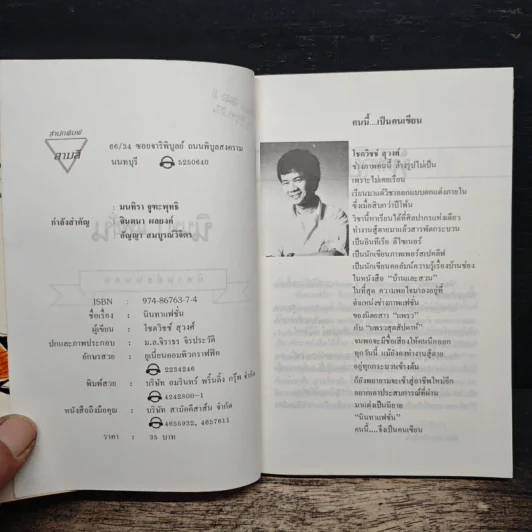 สำนักพิมพ์
สามสี
66/34 ซอยจารุพิบูลย์ ถนนพิบูลสงคราม
นนทบุรี 5250640
: มนทิรา จูฑะพุทธิ
กำลังสำคัญ : จินตนา ผลยงค์
: กัญญา สมบูรณ์วิจิตร
ISBN : 974-86763-7-4
ชื่อเรื่อง : นินทาแฟชั่น
ผู้เขียน : โชติวิชช์ สุวงศ์
ปกและภาพประกอบ : ม.ล.จิราธร จิรประวัติ
อักษรสวย : ยูเนี่ยนคอมพิวกราฟฟิค
2234246
พิมพ์สวย : บริษัท อมรินทร์ พริ้นติ้ง กรุ๊พ จำกัด
4242800-1
หนังสือถึงมือคุณ : บริษัท สามัคคีสาส์น จำกัด
4655932, 4657611
ราคา : 35 บาท
คนนี้...เป็นคนเขียน
โชติวิชช์ สุวงศ์
ช่างภาพคนนี้ ล้างรูปไม่เป็น
เพราะไม่เคยเรียน
เรียนมาแต่วิชาออกแบบตกแต่งภายใน
ซึ่งเมื่อสิบกว่าปีโน้น
วิชานี้หาเรียนได้ที่ศิลปากรแห่งเดียว
ทำงานสู้ตายมาแล้วสารพัดกระบวน
เป็นอินทีเรีย ดีไซเนอร์
เป็นนักเขียนภาพเพอร์สเปคตีฟ
เป็นนักเขียนคอลัมน์ความรู้เรื่องบ้านช่อง
ในหนังสือ "บ้านและสวน"
ในที่สุด ความพอใจมาลงอยู่ที่
ตำแหน่งช่างภาพแฟชั่น
ของนิตยสาร "แพรว"
กับ "แพรวสุดสัปดาห์"
จนพอจะมีชื่อเสียงให้คนนึกออก
ทุกวันนี้ แม้ยังคงทำงานสู้ตาย
อยู่ทุกกระบวนข้างต้น
ก็ยังพยายามจะเข้าสู่อาชีพใหม่อีก
อยากเอาประสบการณ์ที่ผ่าน
มาแต่งเป็นนิยาย
"นินทาแฟชั่น"
คนนี้....จึงเป็นคนเขียน